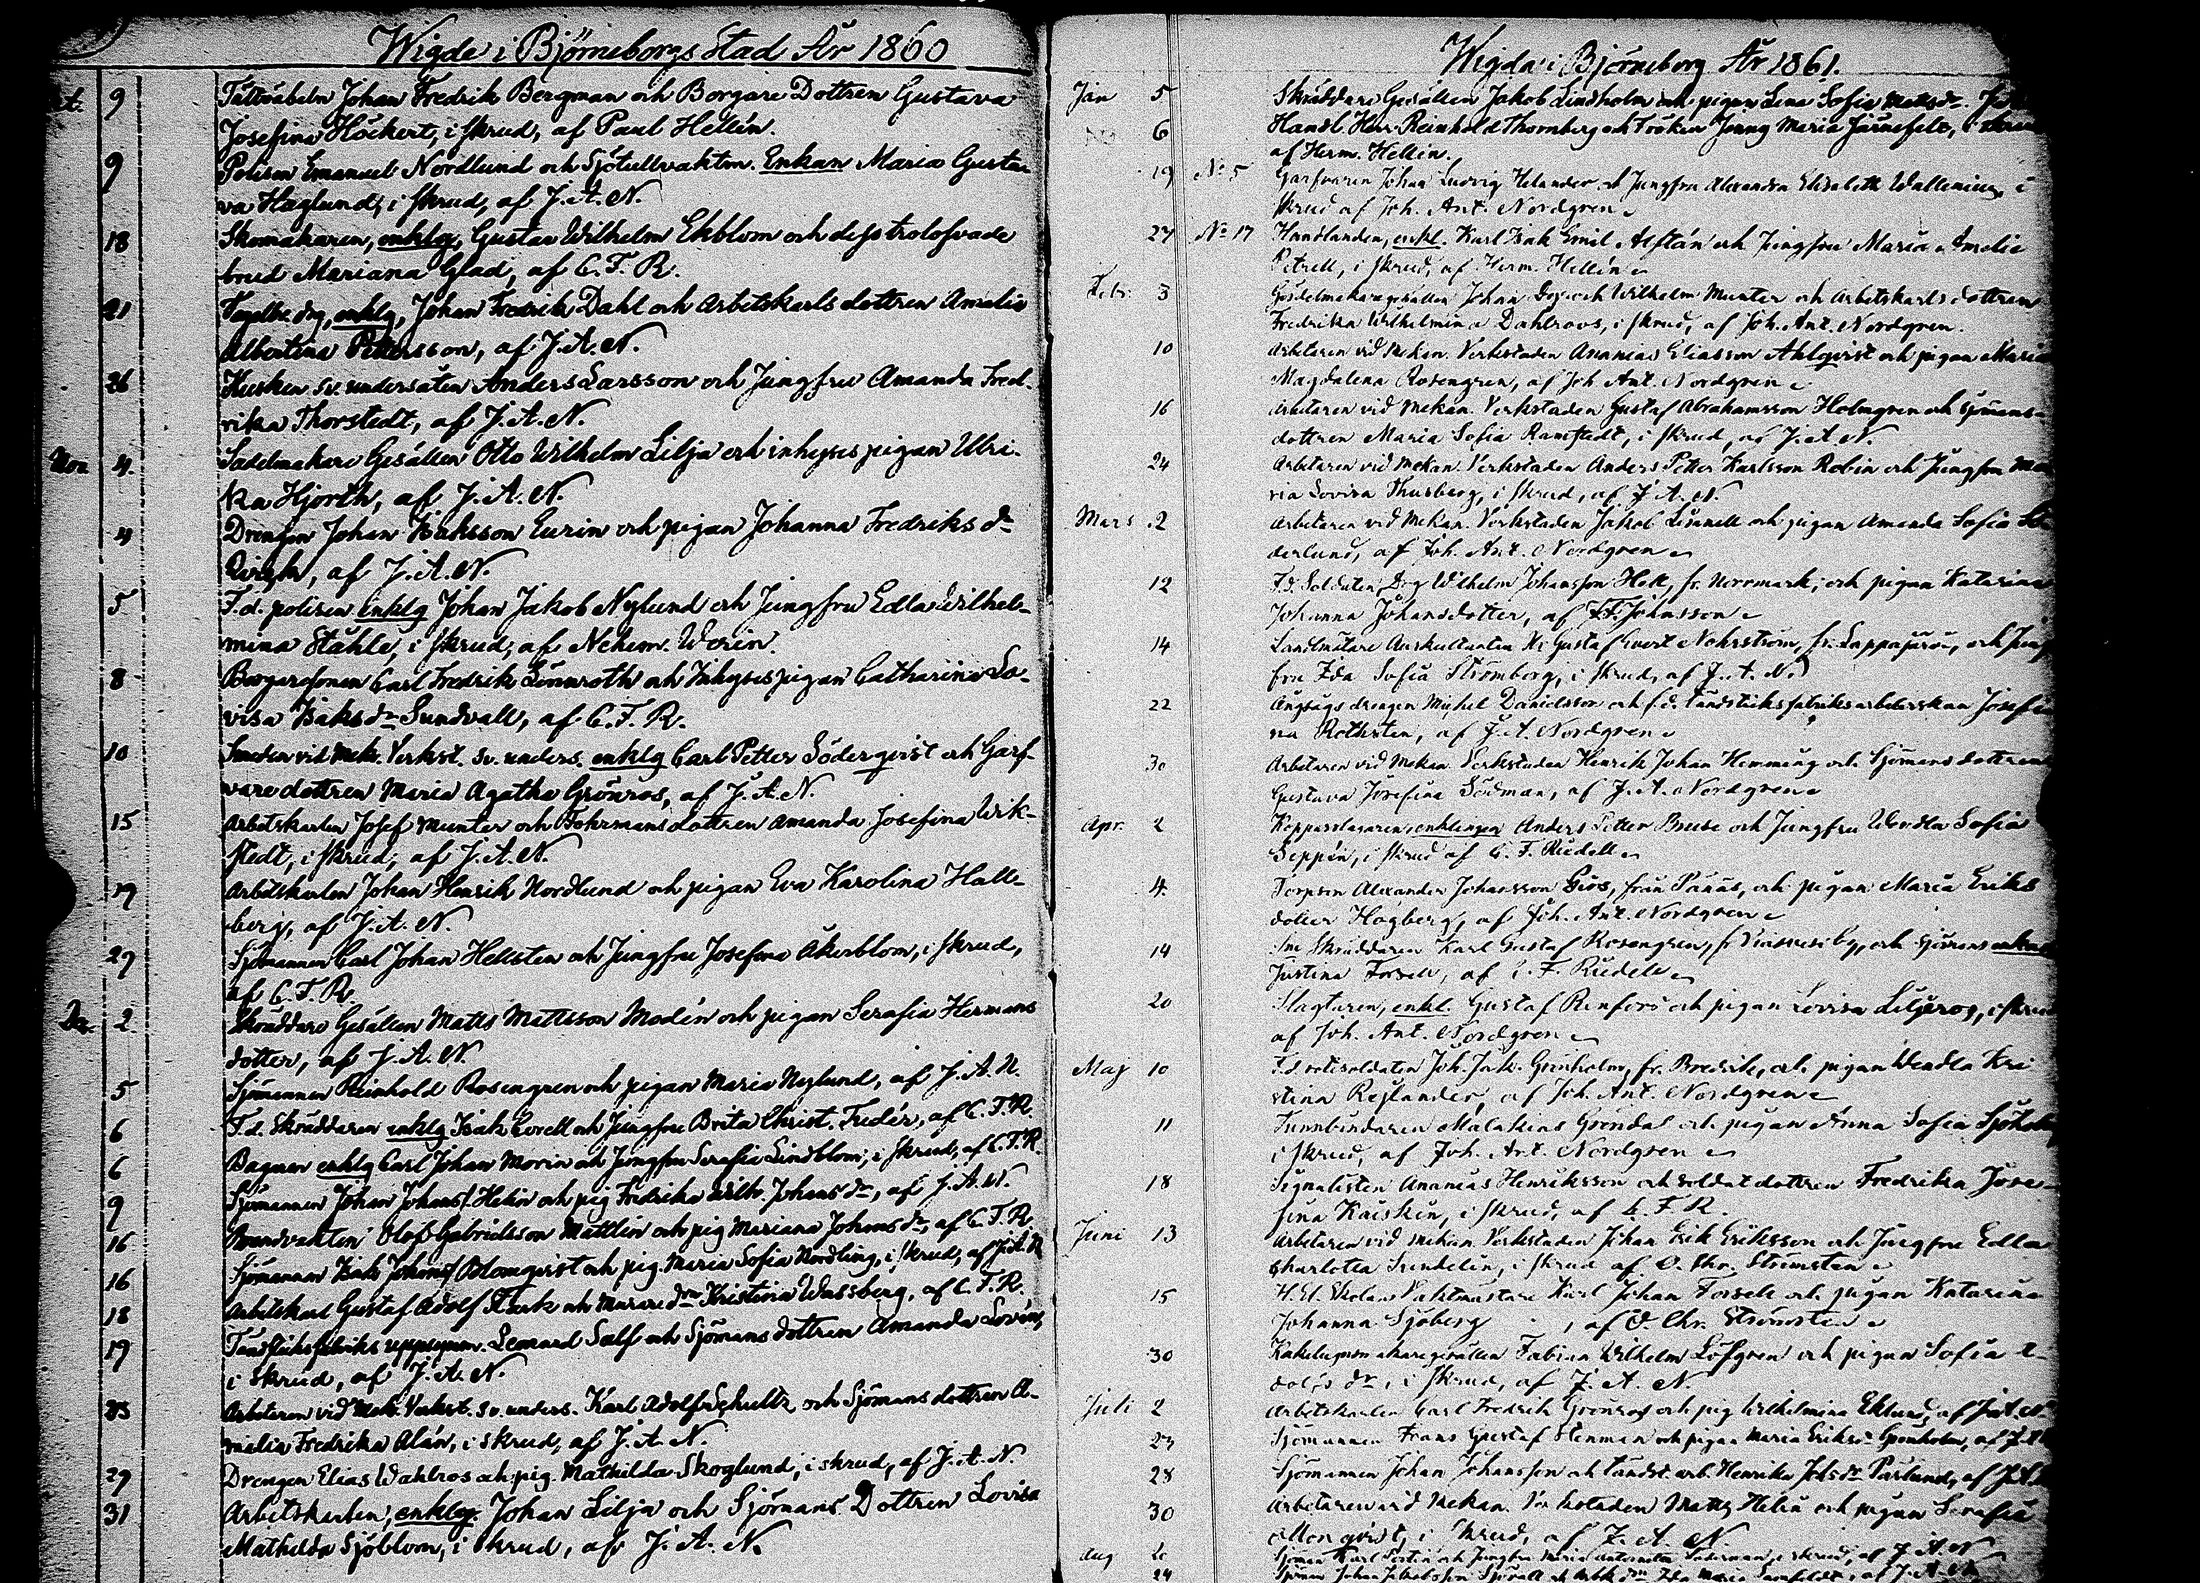 Wigde i Björneborgs Stad År 1860
9 Johan Fredrik Bergman och Borgare Dottren Gustava
Josefina Höckert, i skrud, af Paul Hellén.
9 Polisen Emanuel Nordlund och Sjötullvaktm. Enkan Maria Gusta-
va Haglund, i skrud, af J. A. N.
18 Skomakaren, enklg, Gustav Wilhelm Ekblom och dess trolofvade
brud Mariana Glad, af C. F. R.
21 enklg, Johan Fredrik Dahl och Arbetskarls dottren Amalia
Albertina Pettersson, af J. A. N.
26 Kusken sv. undersåten Anders Larsson och Jungfru Amanda Fred-
rika Thorstedt, af J. A. N.
Nov 4. Sadelmakare Gesällen Otto Wilhelm Lilja och inhyses pigan Ulri-
ka Hjorth, af J. A. N.
4 Drengen Johan Isaksson Eurin och pigan Johanna Fredriks dr
af J. A. N.
5 F. d. polisen enklg Johan Jakob Nylund och Jungfru Edla Wilhel-
mina Ståhle, i skrud, af Nehem. Werin.
8 Borgaresonen Carl Fredrik Lönnroth och Inhysespigan Catharina Lo-
visa Isaks dr Sundvall, af C. F. R.
10 Smeden vid Mek. Verkst. sv. unders. enklg Carl Petter Söderqvist och Garf-
ware dottren Maria Agatha Grönros, af J. A. N.
15 Arbetskarlen Josef Munter och Fohrmans dottren Amanda Josefina Wik-
stedt, i skrud, af J. A. N.
19 Arbetskarlen Johan Henrik Nordlund och pigan Eva Karolina Hall-
berg, af J. A. N.
29 Sjömannen Carl Johan Hellsten och Jungfru Josefina Åkerblom, i skrud,
af C. F. R.
De. 2 Skräddare Gesällen Matts Mattsson Modén och pigan Serafia Hermans
dotter, af J. A. N.
5 Sjömannen Reinhold Rosengren och pigan Maria Nylund, af J. A. N.
6 F. d. Skräddaren enklg Isak Corell och Jungfru Brita Christ. Fredér, af C. F. R.
6 enklg Carl Johan Morin och Jungfru Serafia Lindblom, i skrud, af C. F. R.
9 Sjömannen Johan Johanss. Helin och pig Fredrika Wilh. Johans dr, af J. A. N.
16 Brandvakten Olof Gabrielsson Mattlin och pig Mariana Johans dr, af C. F. R.
16 Sjömannen Isak Johanss Blomqvist och pig. Maria Sofia Nordling, i skrud, af J. A. N
18 Arbetskarl Gustaf Adolf Stark och Kristina Wassberg, af C. F. R.
19 Tändsticksfabriks uppsynm. Leonard Salf och Sjömans dottren Amanda Lovén,
i skrud, af J. A. N.
23 Arbetaren vid Mek. Verkst. sv. unders. Karl Adolf Schultz och Sjömans dottren A-
malia Fredrika Alán, i skrud, af J. A. N.
29 Drengen Elias Wahlros och pig. Mathilda Skoglund, i skrud, af J. A. N.
31 Arbetskarlen, enklg. Johan Lilja och Sjömans Dottren Lovisa
Mathilda Sjöblom, i skrud, af J. A. N.
Wigda i Björneborg År 1861.
Jan 5 Skräddare Gesällen Jakob Lindholm och pigan Lena Sofia Matts dr.
6 Handl. Herr Reinhold Thornberg och Fröken Jenny Maria Järnefelt, i skrud
af Herm. Hellén.
19 No 5 Garfvaren Johan Ludvig Helander och Jungfru Alexandra Elisabeth Wallenius i
skrud af Joh. Ant. Nordgren
27 No 17 Handlanden, enkl. Karl Isak Emil Alftán och Jungfru Maria Amelie
Petrell, i skrud, af Herm. Hellén
Febr. 3 Johan Wilhelm Munter och Arbetskarls dottren
Fredrika Wilhelmina Dahlroos, i skrud, af Joh. Ant. Nordgren.
10 Arbetaren vid Mekan. Verkstaden Ananias Eliasson Ahlqvist och pigan Maria
Magdalena Rosengren, af Joh. Ant. Nordgren
16 Arbetaren vid Mekan. Verkstaden Gustaf Abrahamsson Holmgren och Sjömans-
dottren Maria Sofia Ramstedt, i skrud, af J. A. N.
24 Arbetaren vid Mekan. Verkstaden Anders Petter Karlsson Robin och Jungfru Ma
ria Lovisa Thusberg, i skrud, af J. A. N.
Mars 2 Arbetaren vid Mekan. Verkstaden Jakob Linnell och pigan Amanda Sofia
derlund, af Joh. Ant. Nordgren
12 F. d. Soldaten, Drg Wilhelm Johansson Hök, fr. Norrmark, och pigan Katarina
Johanna Johansdotter, af F. F. Johnsson
14 Landtmätare Auskultanten Hr Gustaf Evert Nohrström, fr. Lappajärvi, och Jung
fru Ida Sofia Strömberg, i skrud, af J. A. N.
22 Ångsågs drengen Michel Danielsson och f. d. tändsticksfabriksarbeterskan Josefi
na Rothsten, af J. A. Nordgren
30 Arbetaren vid Mekan. Verkstaden Henrik Johan Hemming och Sjömans dottren
Gustava Josefina Södman, af J. A. Nordgren
Apr. 2 Kopparslagaren, enklingen Anders Petter Bruse och Jungfru Wendla Sofia
Seppén, i skrud af C. F. Rudell
4 Torpson Alexander Johansson Gros, från Panäs, och pigan Maria Eriks
dotter Hagberg, af Joh. Ant. Nordgren
14 Skräddaren Karl Gustaf Rosengren, fr. och Sjömans enkan
Justina Forsell, af C. F. Rudell
20 Slagtaren, enkl. Gustaf Renfors och pigan Lovisa Liljeros, i skrud
af Joh. Ant. Nordgren
Maj 10 F. d. rotesoldaten Joh. Jak. Grönholm, fr. Bredvik, och pigan Wendla Kri
stina Rejlander, af Joh. Ant. Nordgren
11 Tunnbindaren Malakias Gröndal och pigan Anna Sofia Sjöholm
i skrud, af Joh. Ant. Nordgren
18 Signalisten Ananias Henriksson och soldatdottren Fredrika Jose-
fina Kaiskin, i skrud, af C. F. R.
Juni 13 Arbetaren vid Mekan. Verkstaden Johan Erik Eriksson och Jungfru Edla
Charlotta Sundelin, i skrud af O. Chr. Strömsten
15 H. El. Skolans Vaktmästare Karl Johan Forsell och pigan Katarina
Johanna Sjöberg, af O. Chr. Strömsten
30 Kakelugnsmakaregesällen Fabian Wilhelm Löfgren och pigan Sofia
dolfs dr, i skrud, af J. A. N.
Juli 2 Arbetskarlen Carl Fredrik Grönroos och pig Wilhelmina Eklund, af J. A. N.
23 Sjömannen Frans Gustaf Stenman och pigan Maria Eriks dr Grönholm, af J. A
28 Sjömannen Johan Johansson och tändst. arb. Henrika Johs dr Parlund, af J. A.
30 Arbetaren vid Mekan. Verkstaden Matts Helin och pigan Serafia
i skrud, af J. A. N.
Aug Sjöman Karl och Jungfru Maria i skrud, af J. A. N
24 Sjöman Johan Ida Maria af J. A. N